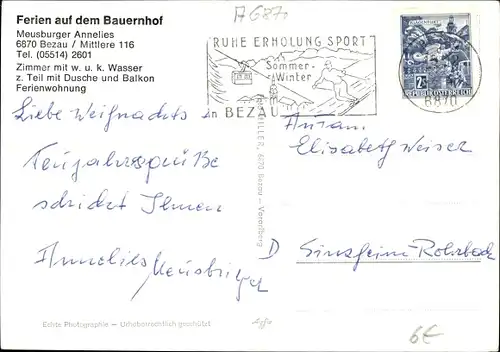 Ferien auf dem Bauernhof
Meusburger Annelies
6870 Bezau / Mittlere 116
Tel. (05514) 2601
Zimmer mit w. u. k. Wasser
z. Teil mit Dusche und Balkon
Ferienwohnung
A 6870
RUHE ERHOLUNG SPORT
Sommer-
Winter
in BEZAU
KLAGENFURT
2S
REPUBLIK ÖSTERREICH
6870
Liebe Weihnachts
Neujahrsgrüße
schickt Ihnen
Annelies Meusburger
6870 Bezau – Vorarlberg
Elisabeth Weiser
D Sinsheim-Rohrbach
Echte Photographie – Urheberrechtlich geschützt
Agfa
6€